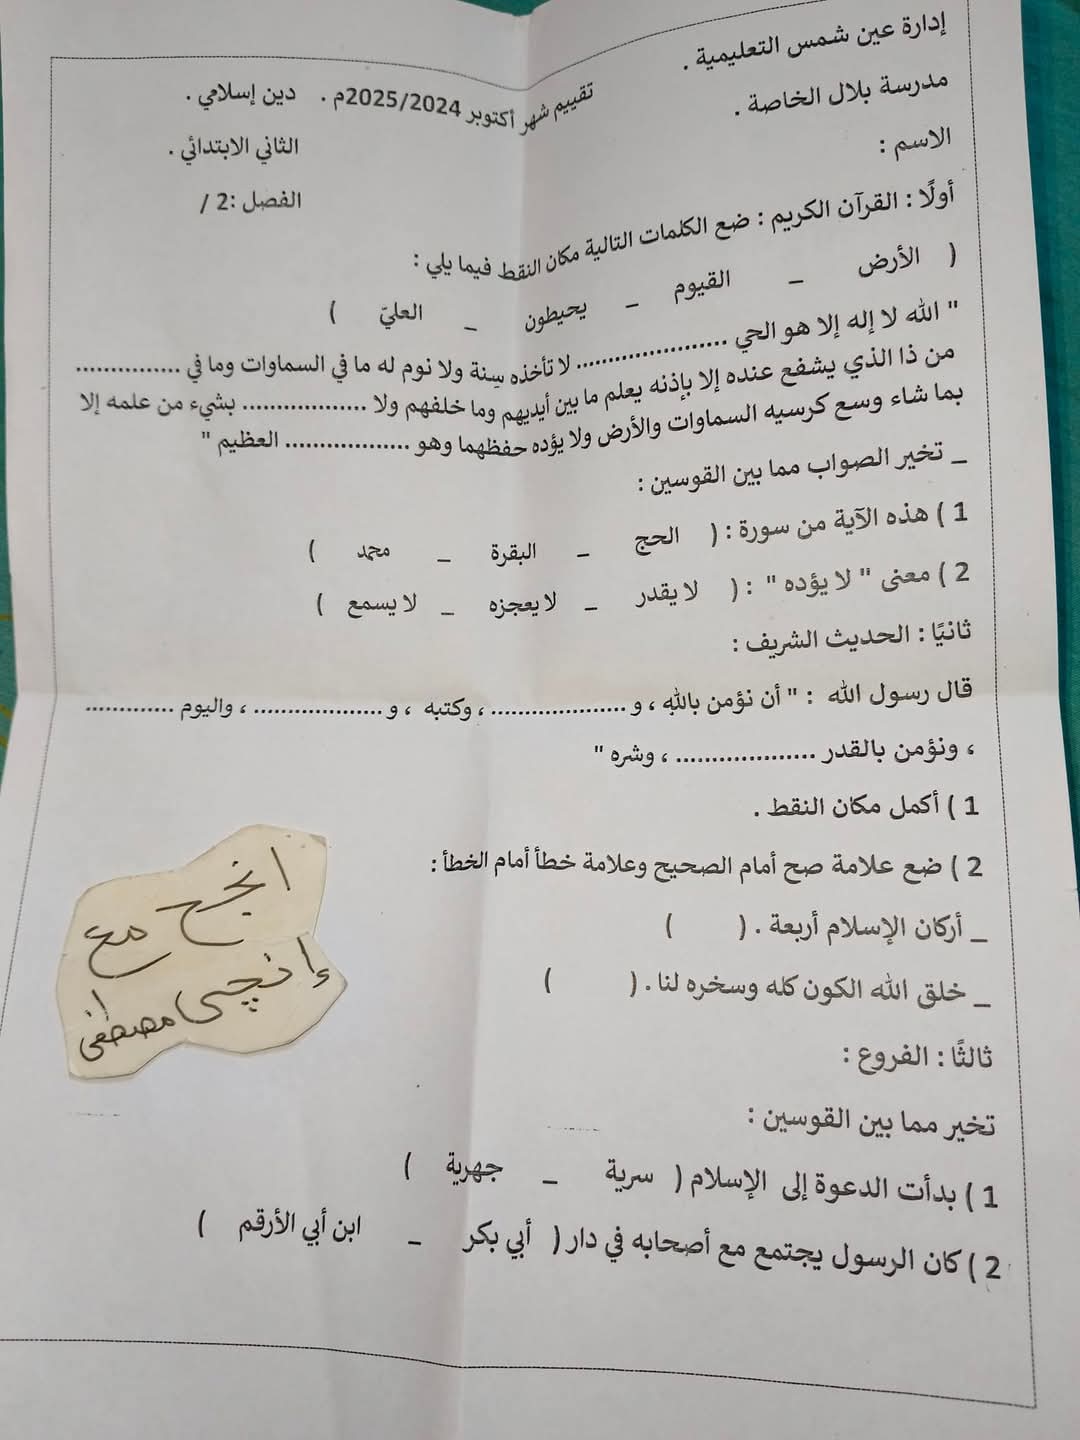 إدارة عين شمس التعليمية .
مدرسة بلال الخاصة .
تقييم شهر أكتوبر 2025/2024م . دين إسلامي .
الاسم :
الثاني الابتدائي .
الفصل :2 /
أولًا : القرآن الكريم : ضع الكلمات التالية مكان النقط فيما يلي :
( الأرض _ القيوم _ يحيطون _ العليّ )
" الله لا إله إلا هو الحي ..................... لا تأخذه سِنة ولا نوم له ما في السماوات وما في ...............
من ذا الذي يشفع عنده إلا بإذنه يعلم ما بين أيديهم وما خلفهم ولا .................. بشيء من علمه إلا
بما شاء وسع كرسيه السماوات والأرض ولا يؤده حفظهما وهو .................. العظيم "
_ تخير الصواب مما بين القوسين :
1 ) هذه الآية من سورة : ( الحج _ البقرة _ محمد )
2 ) معنى " لا يؤده " : ( لا يقدر _ لا يعجزه _ لا يسمع )
ثانيًا : الحديث الشريف :
قال رسول الله : " أن نؤمن بالله ، و .................... ، وكتبه ، و ................... ، واليوم .............
، ونؤمن بالقدر .................... ، وشره "
1 ) أكمل مكان النقط .
2 ) ضع علامة صح أمام الصحيح وعلامة خطأ أمام الخطأ :
_ أركان الإسلام أربعة . ( )
_ خلق الله الكون كله وسخره لنا . ( )
ثالثًا : الفروع :
تخير مما بين القوسين :
1 ) بدأت الدعوة إلى الإسلام ( سرية _ جهرية )
2 ) كان الرسول يجتمع مع أصحابه في دار ( أبي بكر _ ابن أبي الأرقم )
انجح مع
إنچى مصطفى